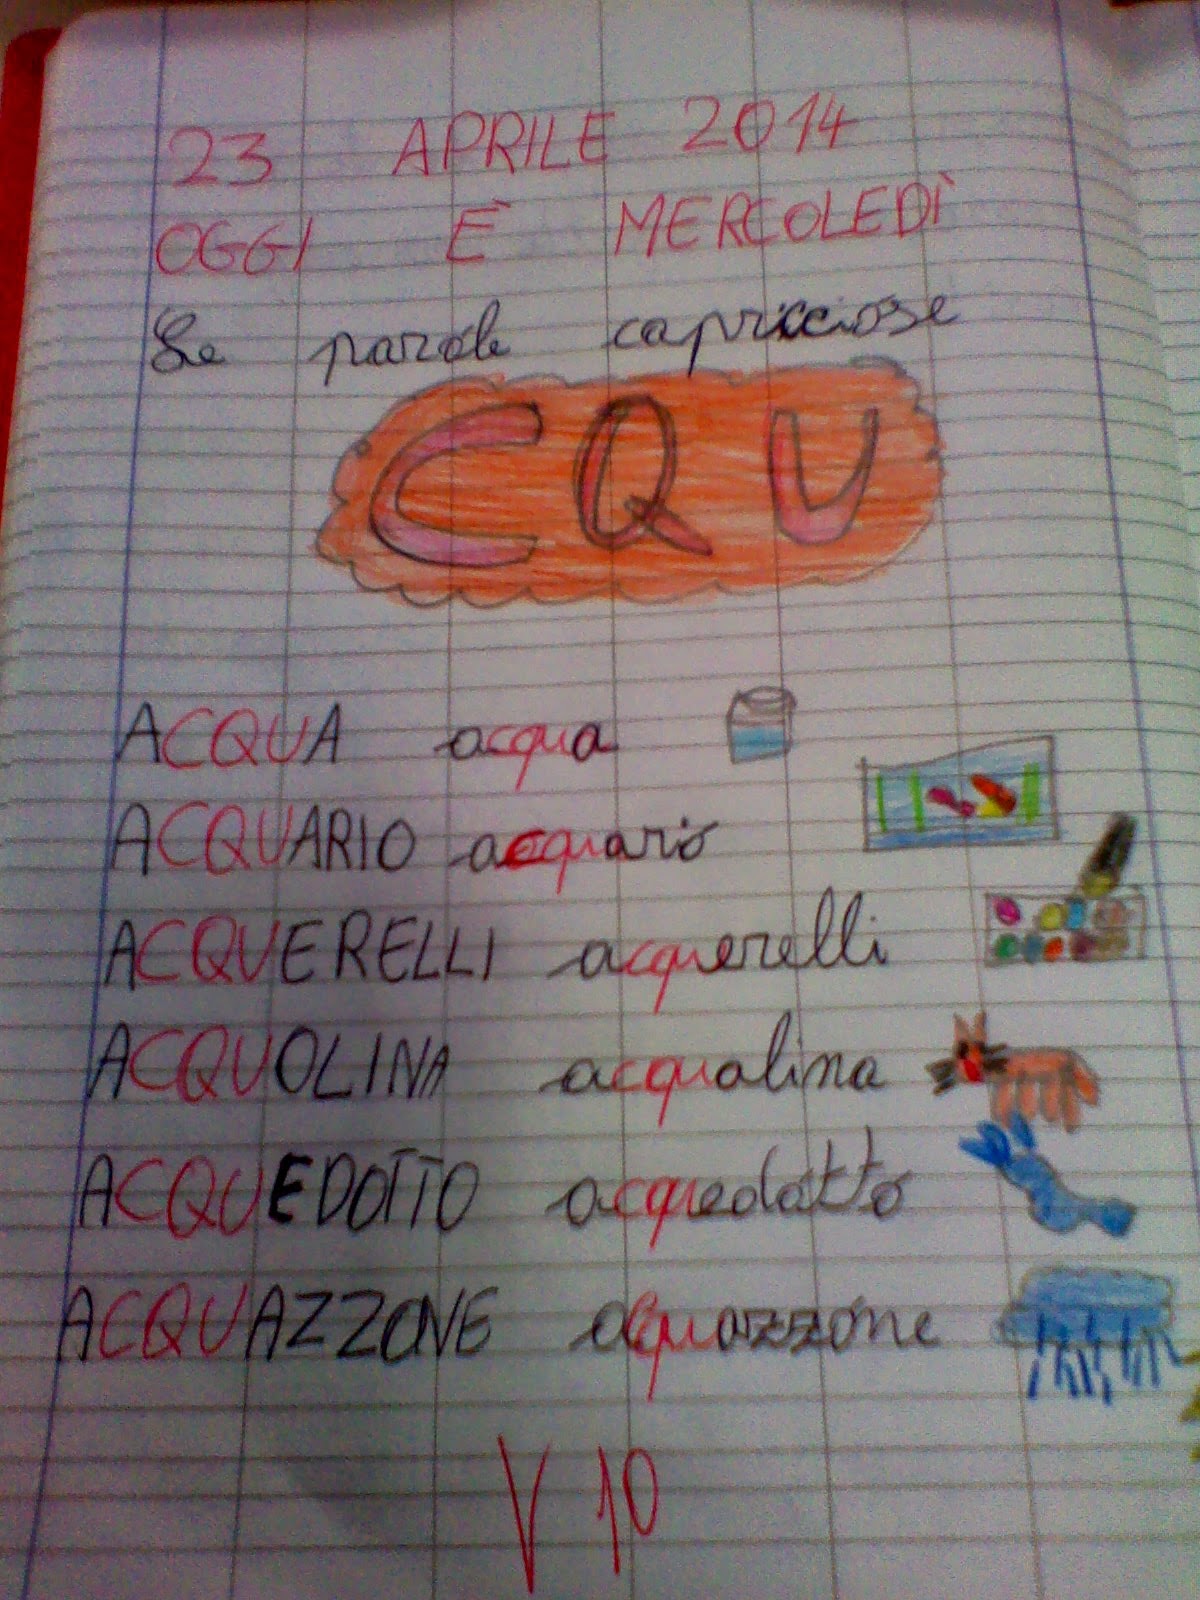 23 APRILE 2014
OGGI È MERCOLEDÌ
Le parole capricciose
CQU
ACQUA acqua
ACQUARIO acquario
ACQUERELLI acquerelli
ACQUOLINA acqualina
ACQUEDOTTO acquedotto
ACQUAZZONE acquazzone
V 10